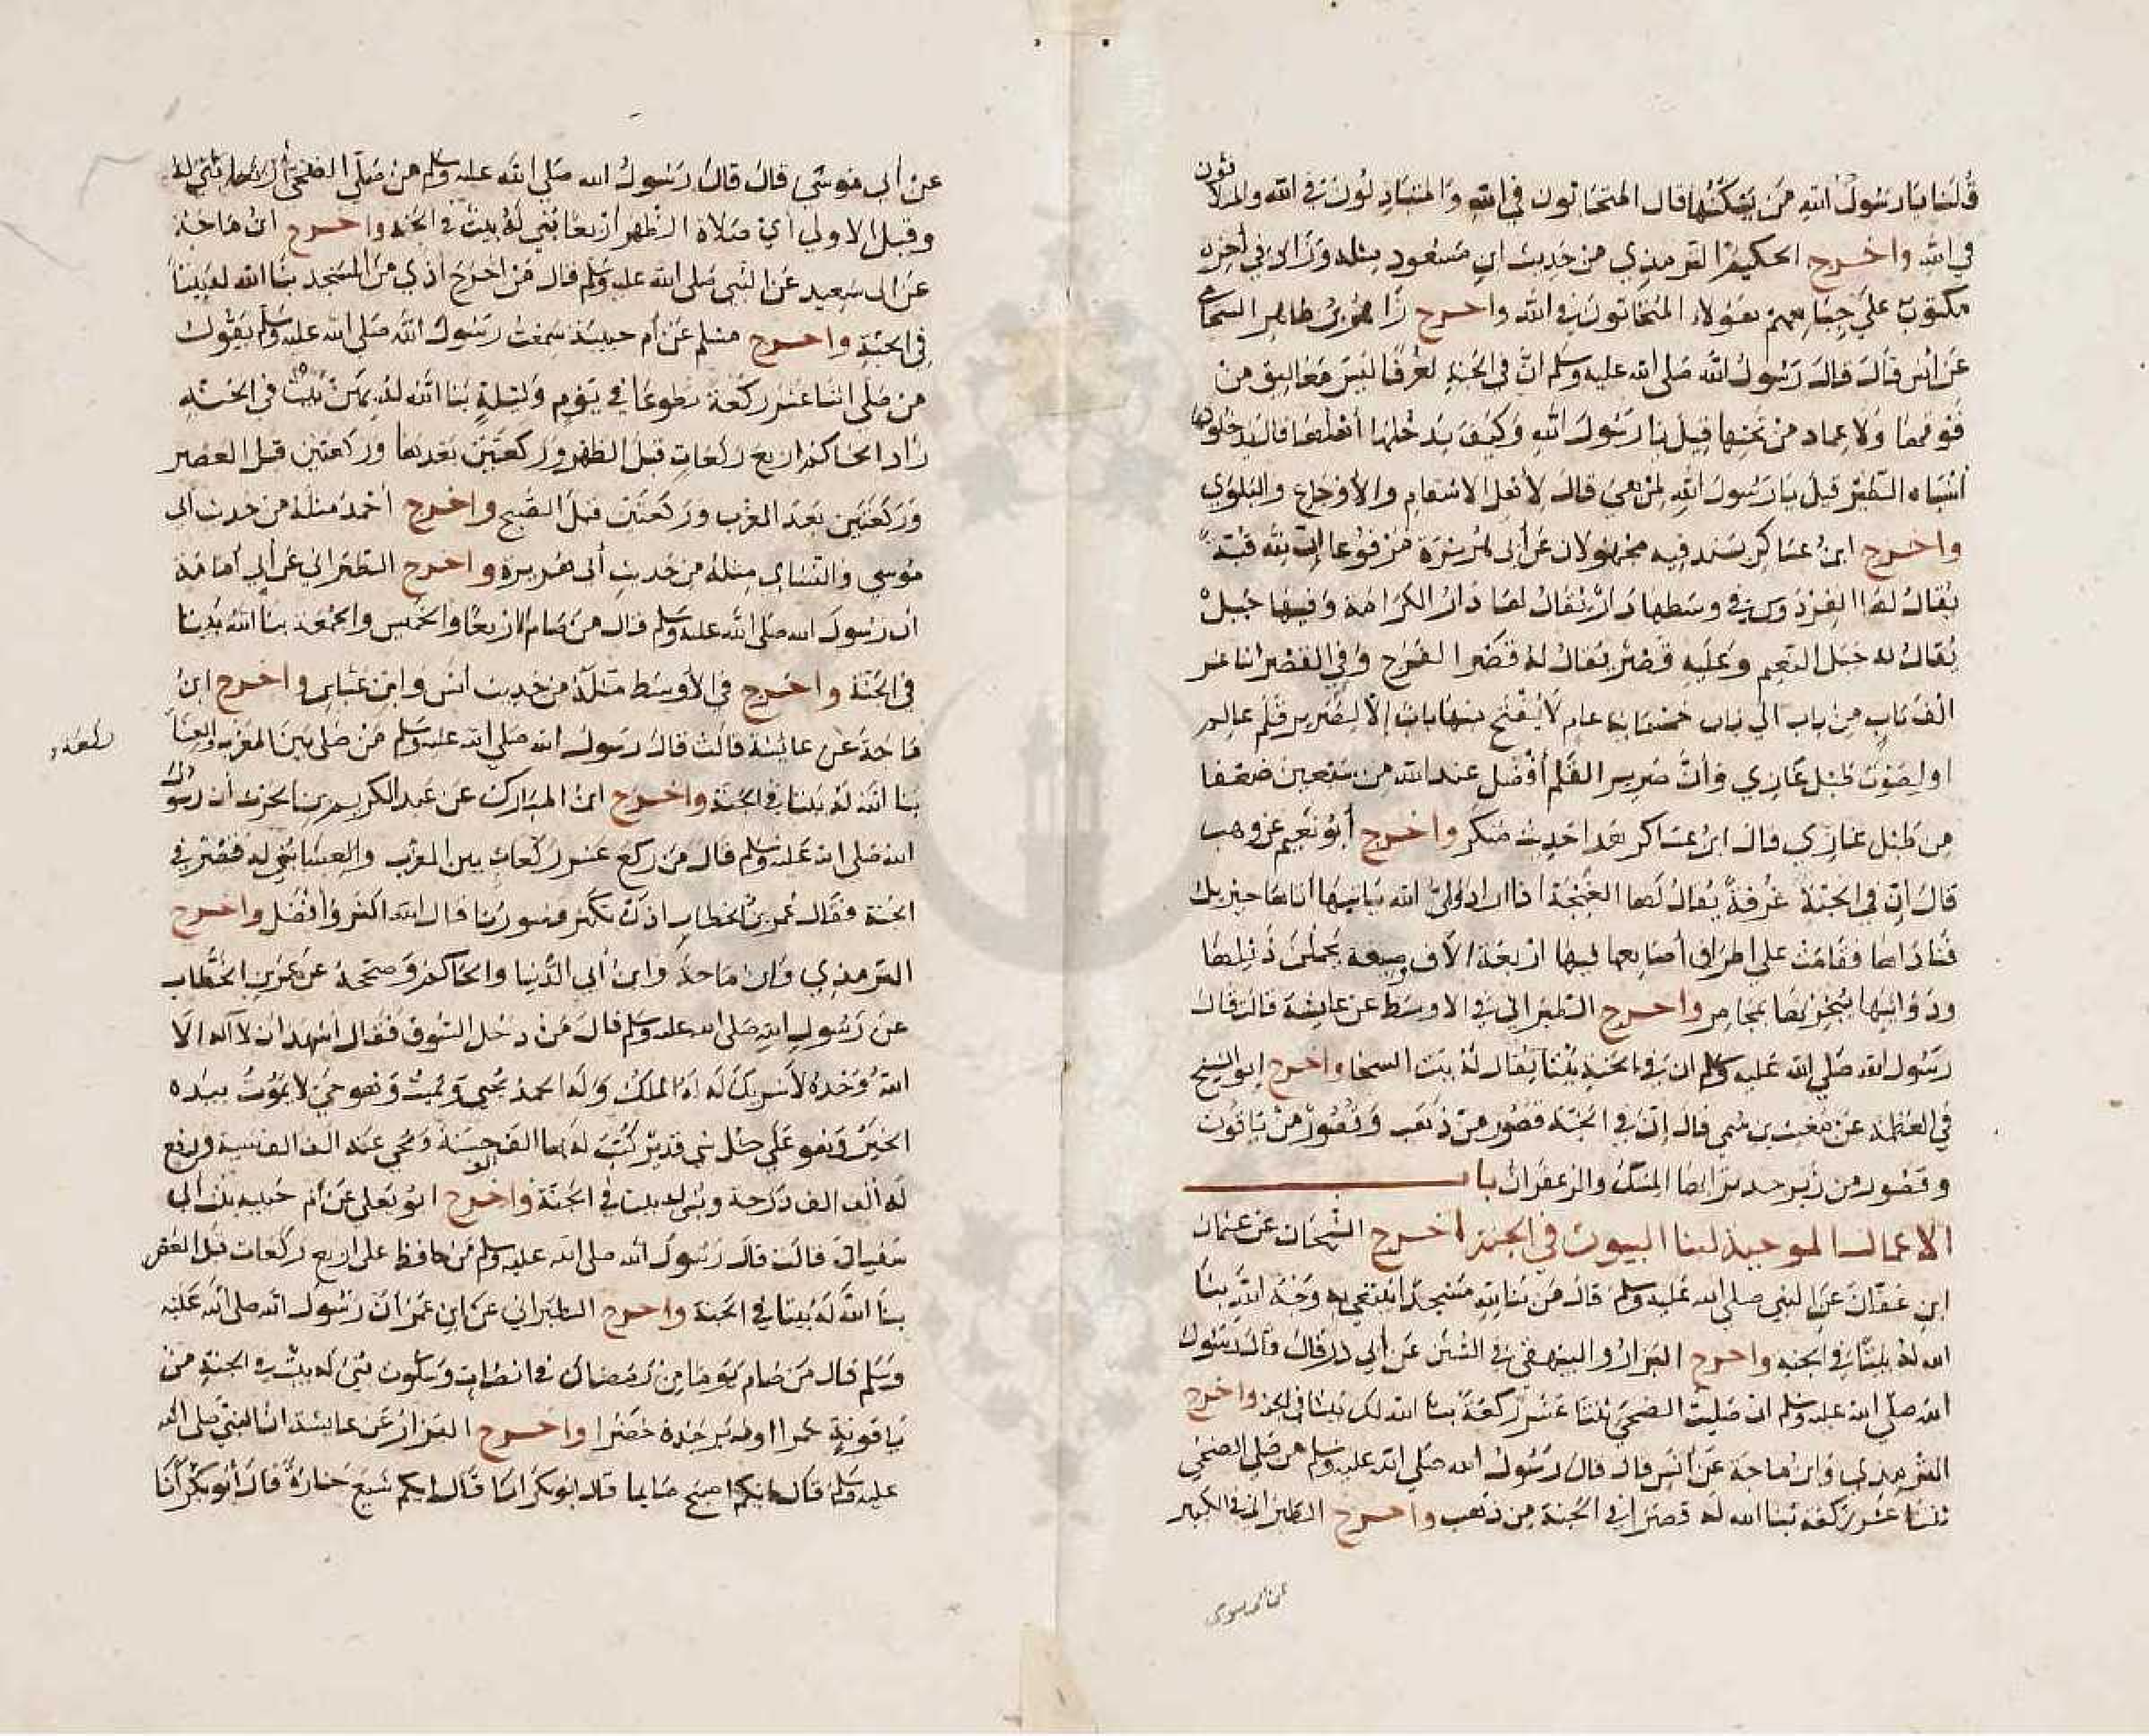 قلنا يا رسول الله من يسكنها قال المتحابون في الله والمتباذلون في الله والمتلاقون
في الله واخرج الحكيم الترمذي من حديث ابن مسعود مثله وزاد في آخره
مكتوب على جباههم هؤلاء المتحابون في الله واخرج زاهر بن طاهر السحامي
عن أنس قال قال رسول الله صلى الله عليه وسلم ان في الجنة لغرفا ليس مغاليق من
فوقها ولا عماد من تحتها قيل يا رسول الله وكيف يدخلها أهلها قال يدخلونها
أشباه الطير قيل يا رسول الله لمن هي قال لأهل الاسقام والأوجاع والبلوي
واخرج ابن عساكر بسند فيه مجهولان عن أبي هريرة مرفوعا ان لله قبة
يقال لها الفردوس في وسطها دار يقال لها دار الكرامة وفيها جبل
يقال له جبل النعيم وعليه قصر يقال له قصر الفرح وفي القصر اثنا عشر
الف باب من باب الي باب خمسماية عام لا يفتح منها باب إلا لصرير قلم عالم
او لصوت طبل غازي وان صرير القلم أفضل عند الله من سبعين ضعفا
من طبل غازي قال ابن عساكر هذا حديث منكر واخرج أبو نعيم عن وهب
قال ان في الجنة غرفة يقال لها العنجة اذا اراد ولي الله ياتيها أتاها جبريل
فناداها فقامت علي اطراف أصابعها فيها اربعة الاف وصيفة يحملن ذيلها
وذوائبها يبخرنها بمجامر واخرج الطبراني في الاوسط عن عايشة قالت قال
رسول الله صلي الله عليه وسلم ان في الجنة بيتا يقال له بيت السخا واخرج ابو الشيخ
في العظمة عن مغيث بن سمي قال إن في الجنة قصور من ذهب وقصور من ياقوت
وقصور من زبرجد ترابها المسك والزعفران باب
الاعمال الموجبة لبنا البيوت في الجنة اخرج الشيخان عن عثمان
ابن عفان عن النبي صلى الله عليه وسلم قال من بنا لله مسجدا ابتغى به وجه الله بنا
الله له بيتا في الجنة واخرج البزار والبيهقي في السنن عن أبي ذر قال قال رسول
الله صلي الله عليه وسلم ان صليت الضحى ثلثا عشر ركعة بنا الله لك بيتا في الجنة واخرج
الترمذي وابن ماجة عن أنس قال قال رسول الله صلي الله عليه وسلم من صلي الضحي
ثلثا عشر ركعة بنا الله له قصرا في الجنة من ذهب واخرج الطبراني في الكبير
عن أبي موسى
عن أبي موسى قال قال رسول الله صلي الله عليه وسلم من صلي الضحى أربعا بني له
وقبل الاولي أي صلاة الظهر أربعا بني له بيت في الجنة واخرج ابن ماجة
عن ابي سعيد عن النبي صلى الله عليه وسلم قال من أخرج أذي من المسجد بنا الله له بيتا
في الجنة واخرج مسلم عن أم حبيبة سمعت رسول الله صلى الله عليه وسلم يقول
من صلى اثنا عشر ركعة تطوعا في يوم وليلة بنا الله له بهن بيت في الجنة
زاد الحاكم اربع ركعات قبل الظهر وركعتين بعدها وركعتين قبل العصر
وركعتين بعد المغرب وركعتين قبل الصبح واخرج أحمد مثله من حديث أبي
موسى والنساي مثله من حديث أبي هريرة واخرج الطبراني عن أبي أمامة
ان رسول الله صلى الله عليه وسلم قال من صام الاربعا والخميس والجمعة بنا الله له بيتا
في الجنة واخرج في الأوسط مثله من حديث أنس وابن عباس واخرج ابن
ماجة عن عائشة قالت قال رسول الله صلي الله عليه وسلم من صلى بين المغرب والعشا
ركعة
بنا الله له بيتا في الجنة واخرج ابن المبارك عن عبد الكريم بن الحرث أن رسول
الله صلى الله عليه وسلم قال من ركع عشر ركعات بين المغرب والعشا بني له قصر في
الجنة فقال عمر بن الخطاب اذن تكثر قصورنا قال الله اكثر وأفضل واخرج
الترمذي وابن ماجة وابن أبي الدنيا والحاكم وصححه عن عمر بن الخطاب
عن رسول الله صلى الله عليه وسلم قال من دخل السوق فقال اشهد ان لا اله الا
الله وحده لا شريك له له الملك وله الحمد يحيي ويميت وهو حي لا يموت بيده
الخير وهو على كل شي قدير كتب له بها الف حسنة ومحي عنه الف الف سيئة ورفع
له ألف الف درجة وبني له بيت في الجنة واخرج ابو يعلي عن أم حبيبه بنت أبي
سفيان قالت قال رسول الله صلى الله عليه وسلم من حافظ على اربع ركعات قبل العصر
بنا الله له بيتا في الجنة واخرج الطبراني عن ابن عمر أن رسول الله صلى الله عليه
وسلم قال من صام يوما من رمضان في انصات وسكون بني له بيت في الجنة من
ياقوتة حمرا او زبرجدة خضرا واخرج البزار عن عايشة ان النبي صلى الله
عليه وسلم قال ايكم اصبح صايما قال ابو بكر انا قال ايكم شيع جنازة قال أبو بكر أنا